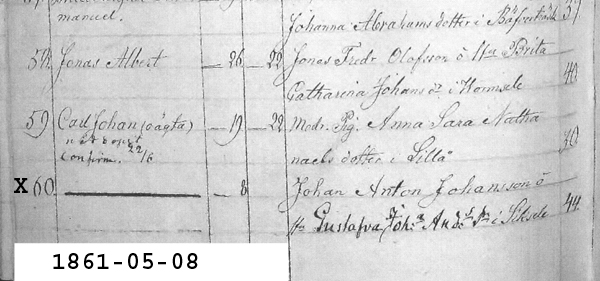 manuel.
Johanna Abrahams dotter i Bäfverträsk 37
58 Jonas Albert 26 29 Jonas Fredr Olofsson o Hu Brita
Catharina Johans dr i Vormsele 40.
59 Carl Johan (oägta) 19 22 Modr. Pig. Anna Sara Natha
confirm. 22/6 naels dotter i Sillå 40
X 60 8 Johan Anton Johansson o
Hu Gustafva Joh: And: dr i Siksele 44.
1861-05-08